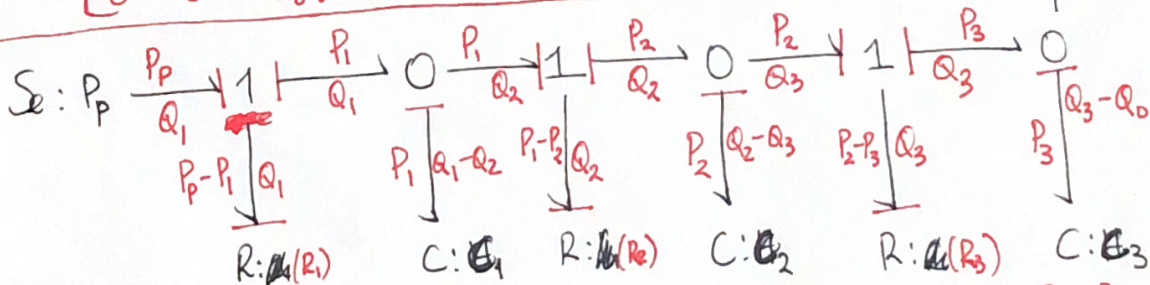 Se : Pp Pp Q1 1 P1 Q1 0 P1 Q2 1 P2 Q2 0 P2 Q3 1 P3 Q3 0
Pp-P1 Q1 P1 Q1-Q2 P1-P2 Q2 P2 Q2-Q3 P2-P3 Q3 P3 Q3-Q0
R: (R1) C: C1 R: (R2) C: C2 R: (R3) C: C3